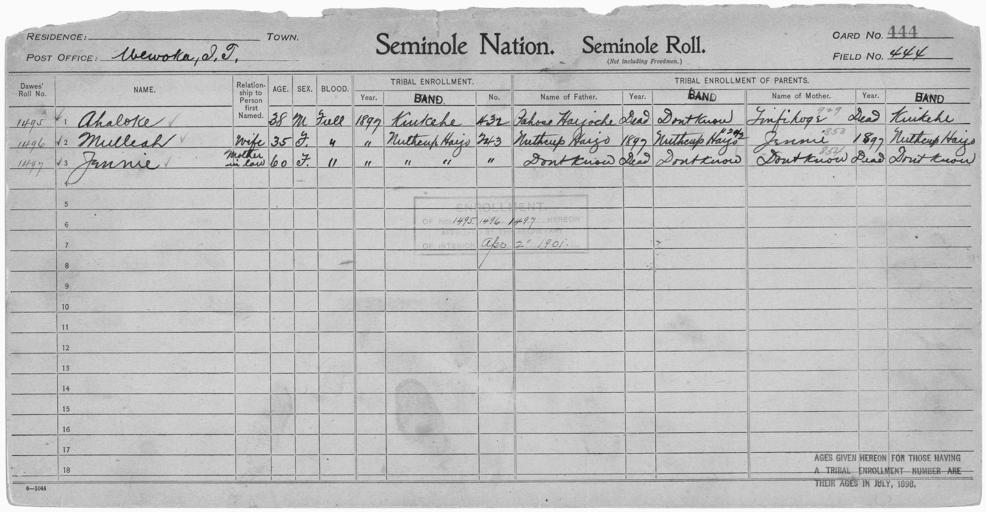 RESIDENCE: TOWN.
POST OFFICE: Wewoka, I.T.
Seminole Nation. Seminole Roll.
(Not including Freedmen.)
CARD NO. 444
FIELD NO. 444
Dawes' Roll No. NAME. Relationship to Person first Named. AGE. SEX. BLOOD. TRIBAL ENROLLMENT. TRIBAL ENROLLMENT OF PARENTS.
Year. BAND. No. Name of Father. Year. BAND Name of Mother. Year. BAND
1495 1 Ahaloke 38 M. Full 1897 Kinkehe 432 Hajoche Dead Dont Know 929 Dead Kinkehe
1496 2 Mulleah Wife 35 F. " " Nuthcup Harjo 243 Nuthcup Harjo 1897 Nuthcup Harjo Jennie 1897 Nuthcup Harjo
1497 3 Jennie Mother in Law 60 F. " " " " " Dont Know Dead Dont Know Dont Know Dead Dont Know
5
6
7
8
9
10
11
12
13
14
15
16
17
18
ENROLLMENT
OF NOS. 1495 1496 1497 HEREON
OF INTERIOR Apr 2 1901.
AGES GIVEN HEREON FOR THOSE HAVING
A TRIBAL ENROLLMENT NUMBER ARE
THEIR AGES IN JULY, 1898.
6—1044